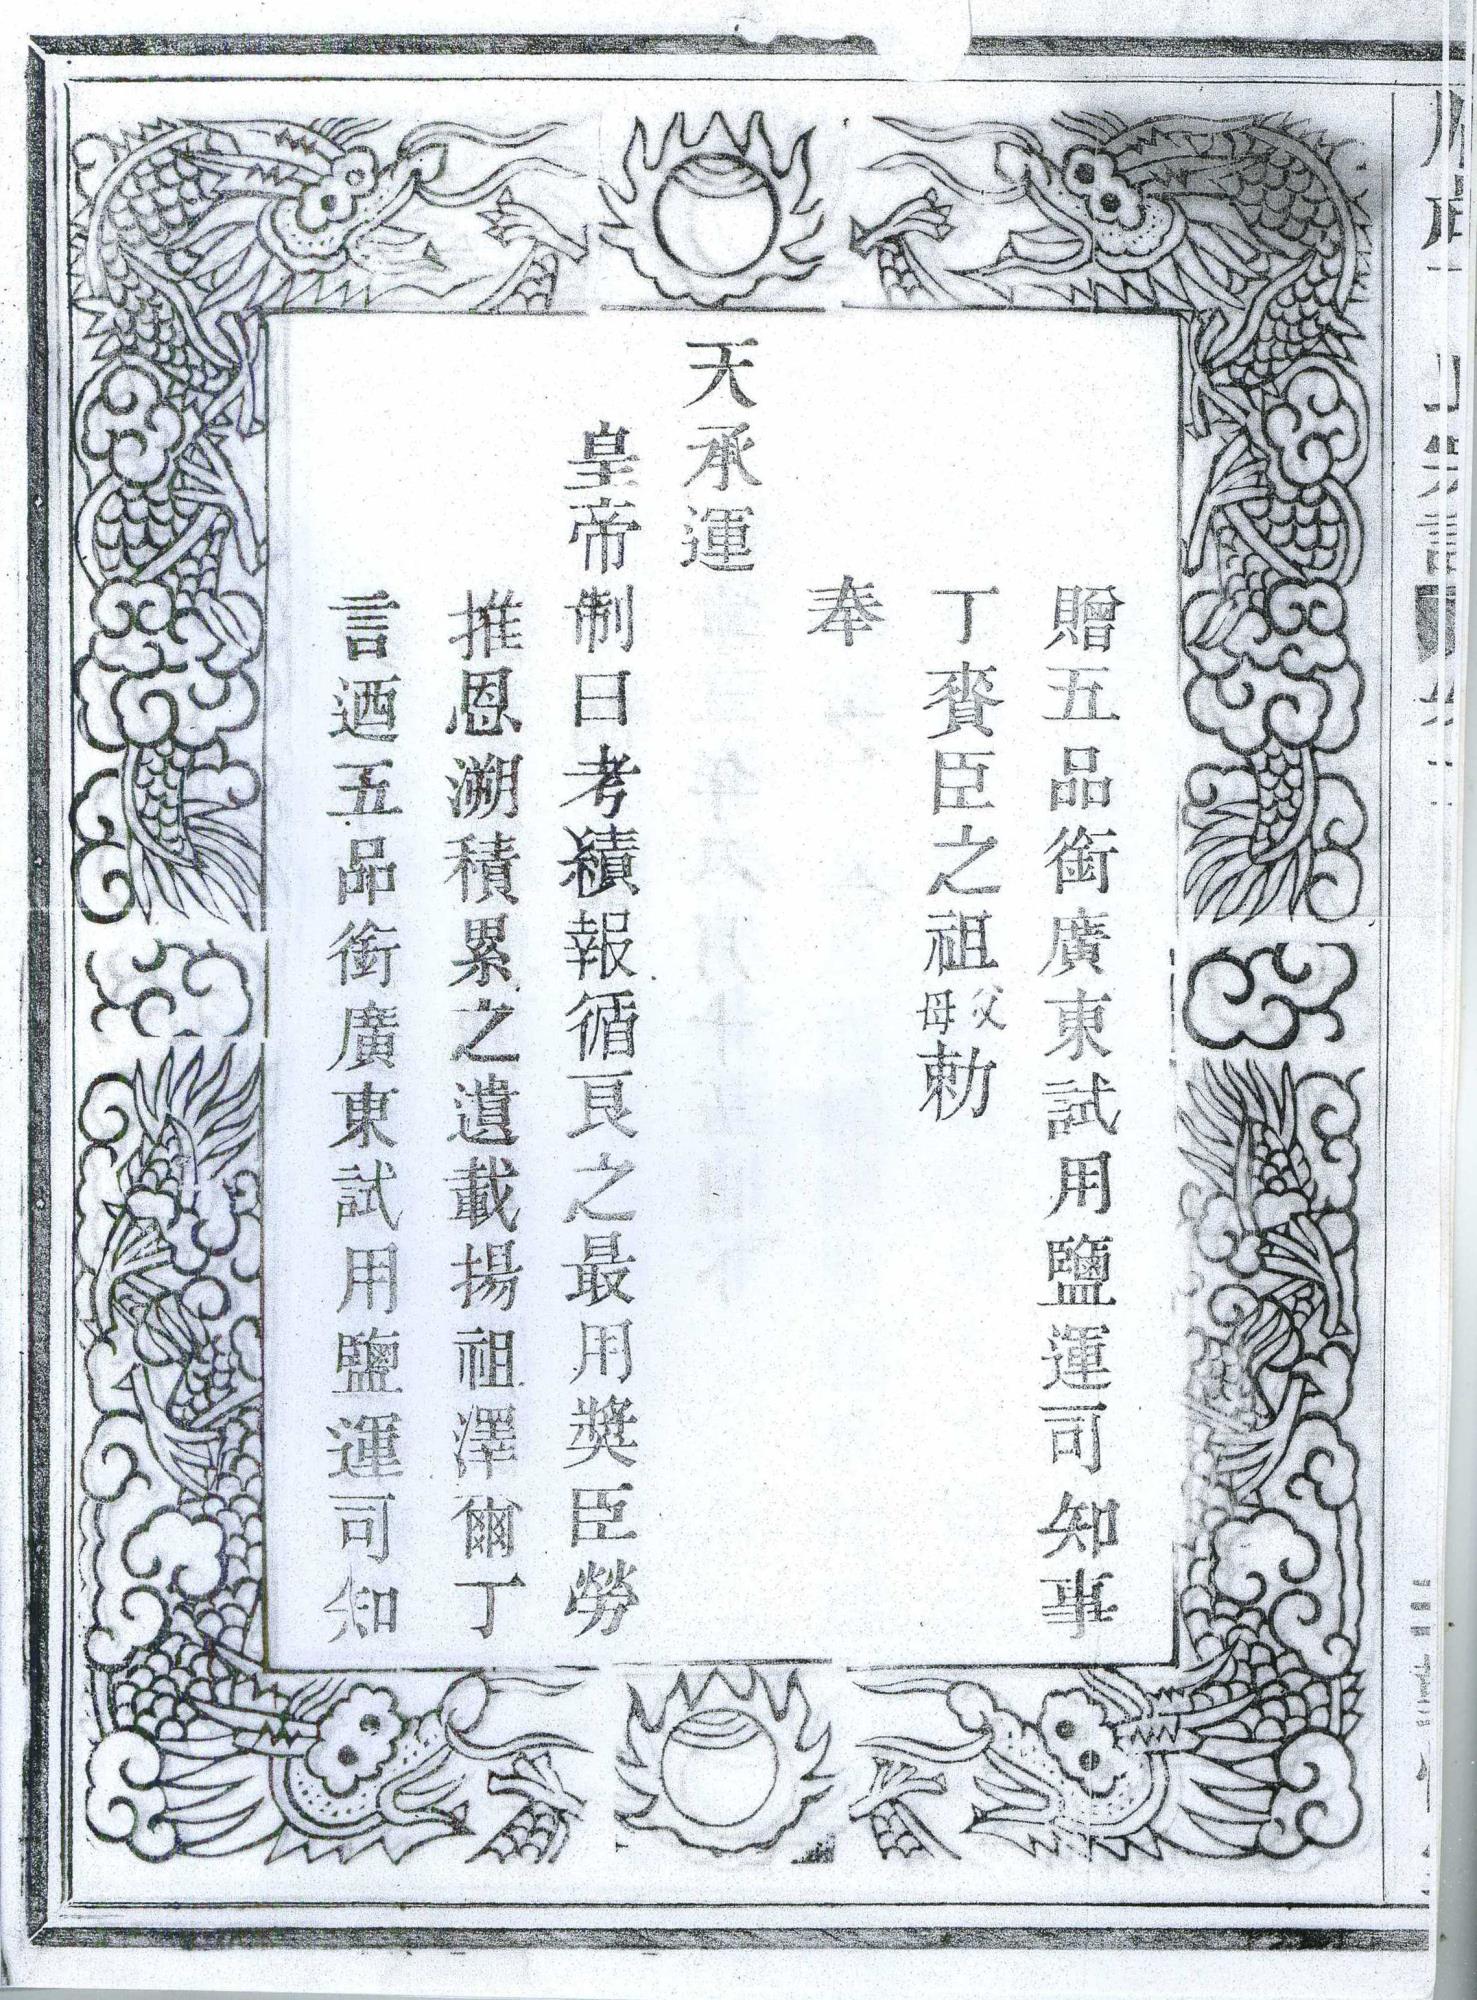 贈五品銜廣東試用鹽運司知事
丁賚臣之祖父母勅
奉
天承運
皇帝制曰考績報循良之最用奬臣勞
推恩溯積累之遺載揚祖澤爾丁
言迺五品銜廣東試用鹽運司知